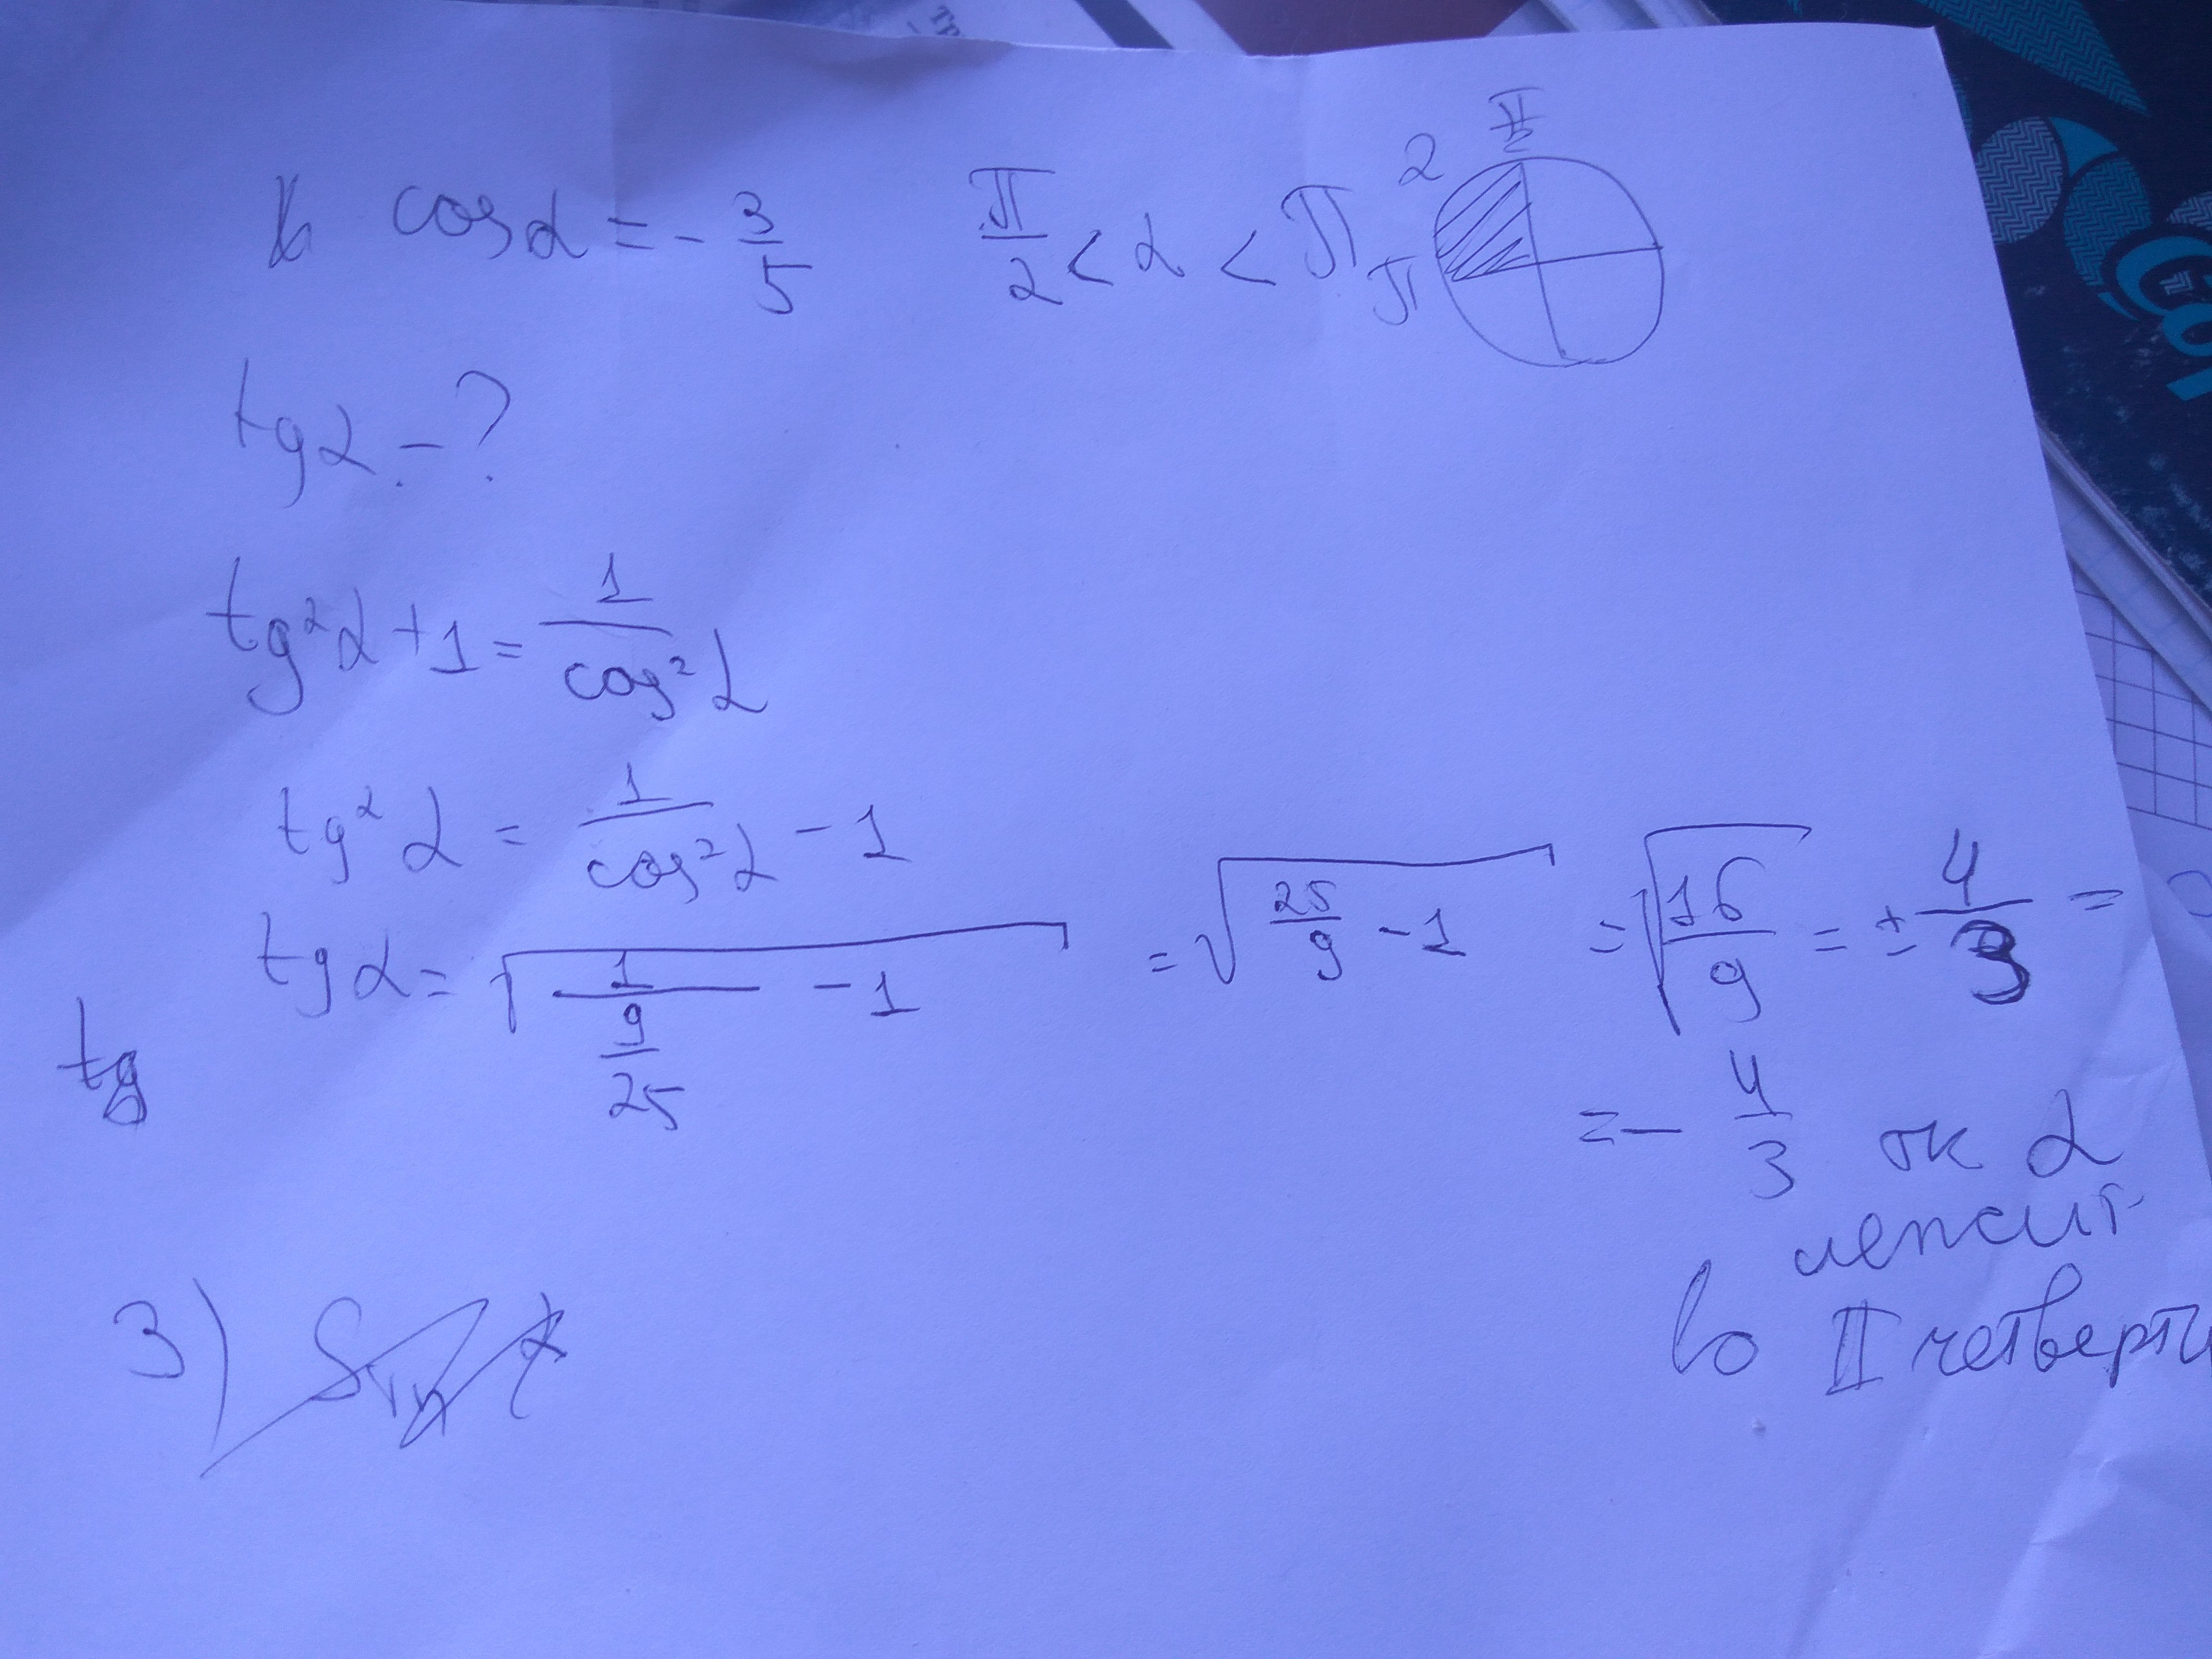 cos α = - 3/5   π/2 < α < π   2   π/2   π
tg α - ?
tg² α + 1 = 1/cos² α
tg² α = 1/cos² α - 1
tg α = √(1/(9/25) - 1) = √(25/9 - 1) = √(16/9) = ± 4/3 =
tg
= - 4/3 тк α
лежит
во II четверти
3)